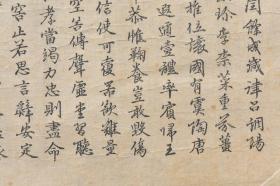 閏餘成歲律呂調陽
珍李柰菜重芥薑
推位讓國有虞陶唐
遐邇壹體率賓歸王
恭惟鞠養豈敢毀傷
信使可覆器欲難量
空谷傳聲虛堂習聽
孝當竭力忠則盡命
容止若思言辭安定